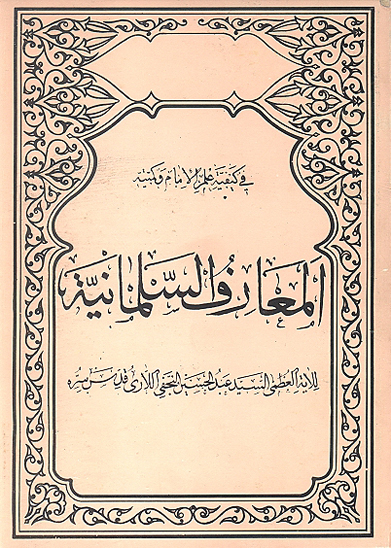 في كيفية علم الإمام وكميته
المعارف السلمانية
للآية العظمى السيد عبد الحسين النجفي اللاري قدس سره